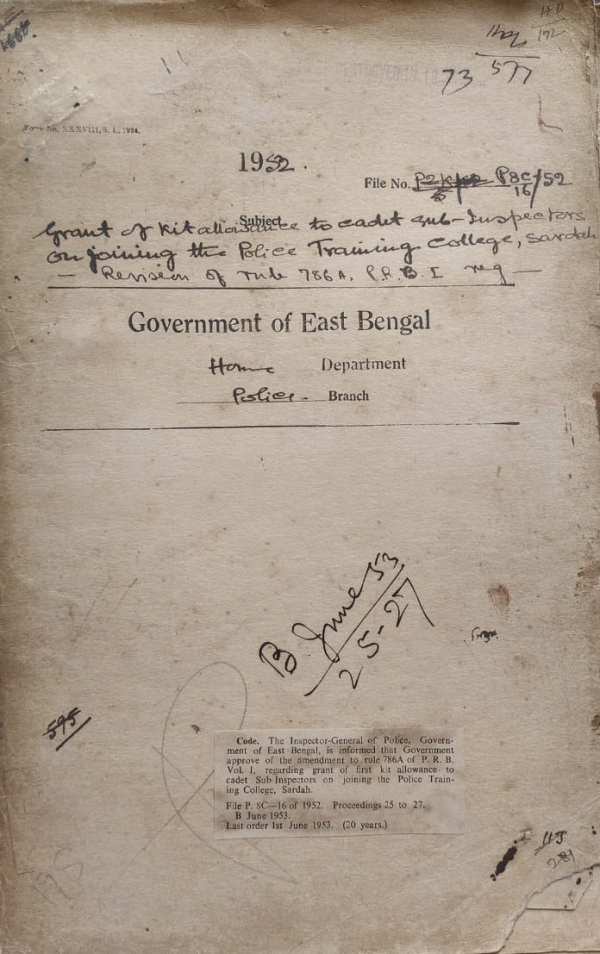 73 577
192
Form No. XXXVIII, S. I., 1924.
1952.
File No. P8C/16/52
Subject
Grant of Kit allowance to cadet Sub-Inspectors
on joining the Police Training College, Sardah
— Revision of rule 786A, P.R.B. I reg —
Government of East Bengal
Home Department
Police. Branch
B. June 53
25-27
595
Code. The Inspector-General of Police, Govern-
ment of East Bengal, is informed that Government
approve of the amendment to rule 786A of P. R. B.
Vol. I, regarding grant of first kit allowance to
cadet Sub-Inspectors on joining the Police Train-
ing College, Sardah.
File P. 8C—16 of 1952. Proceedings 25 to 27.
B June 1953.
Last order 1st June 1953. (20 years.)
281